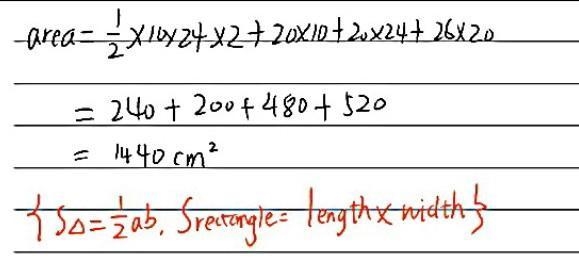 area = 1/2 × 10 × 24 × 2 + 20×10 + 20×24 + 26×20
= 240 + 200 + 480 + 520
= 1440 cm²
{ S△ = 1/2 ab. Srectangle = length × width }